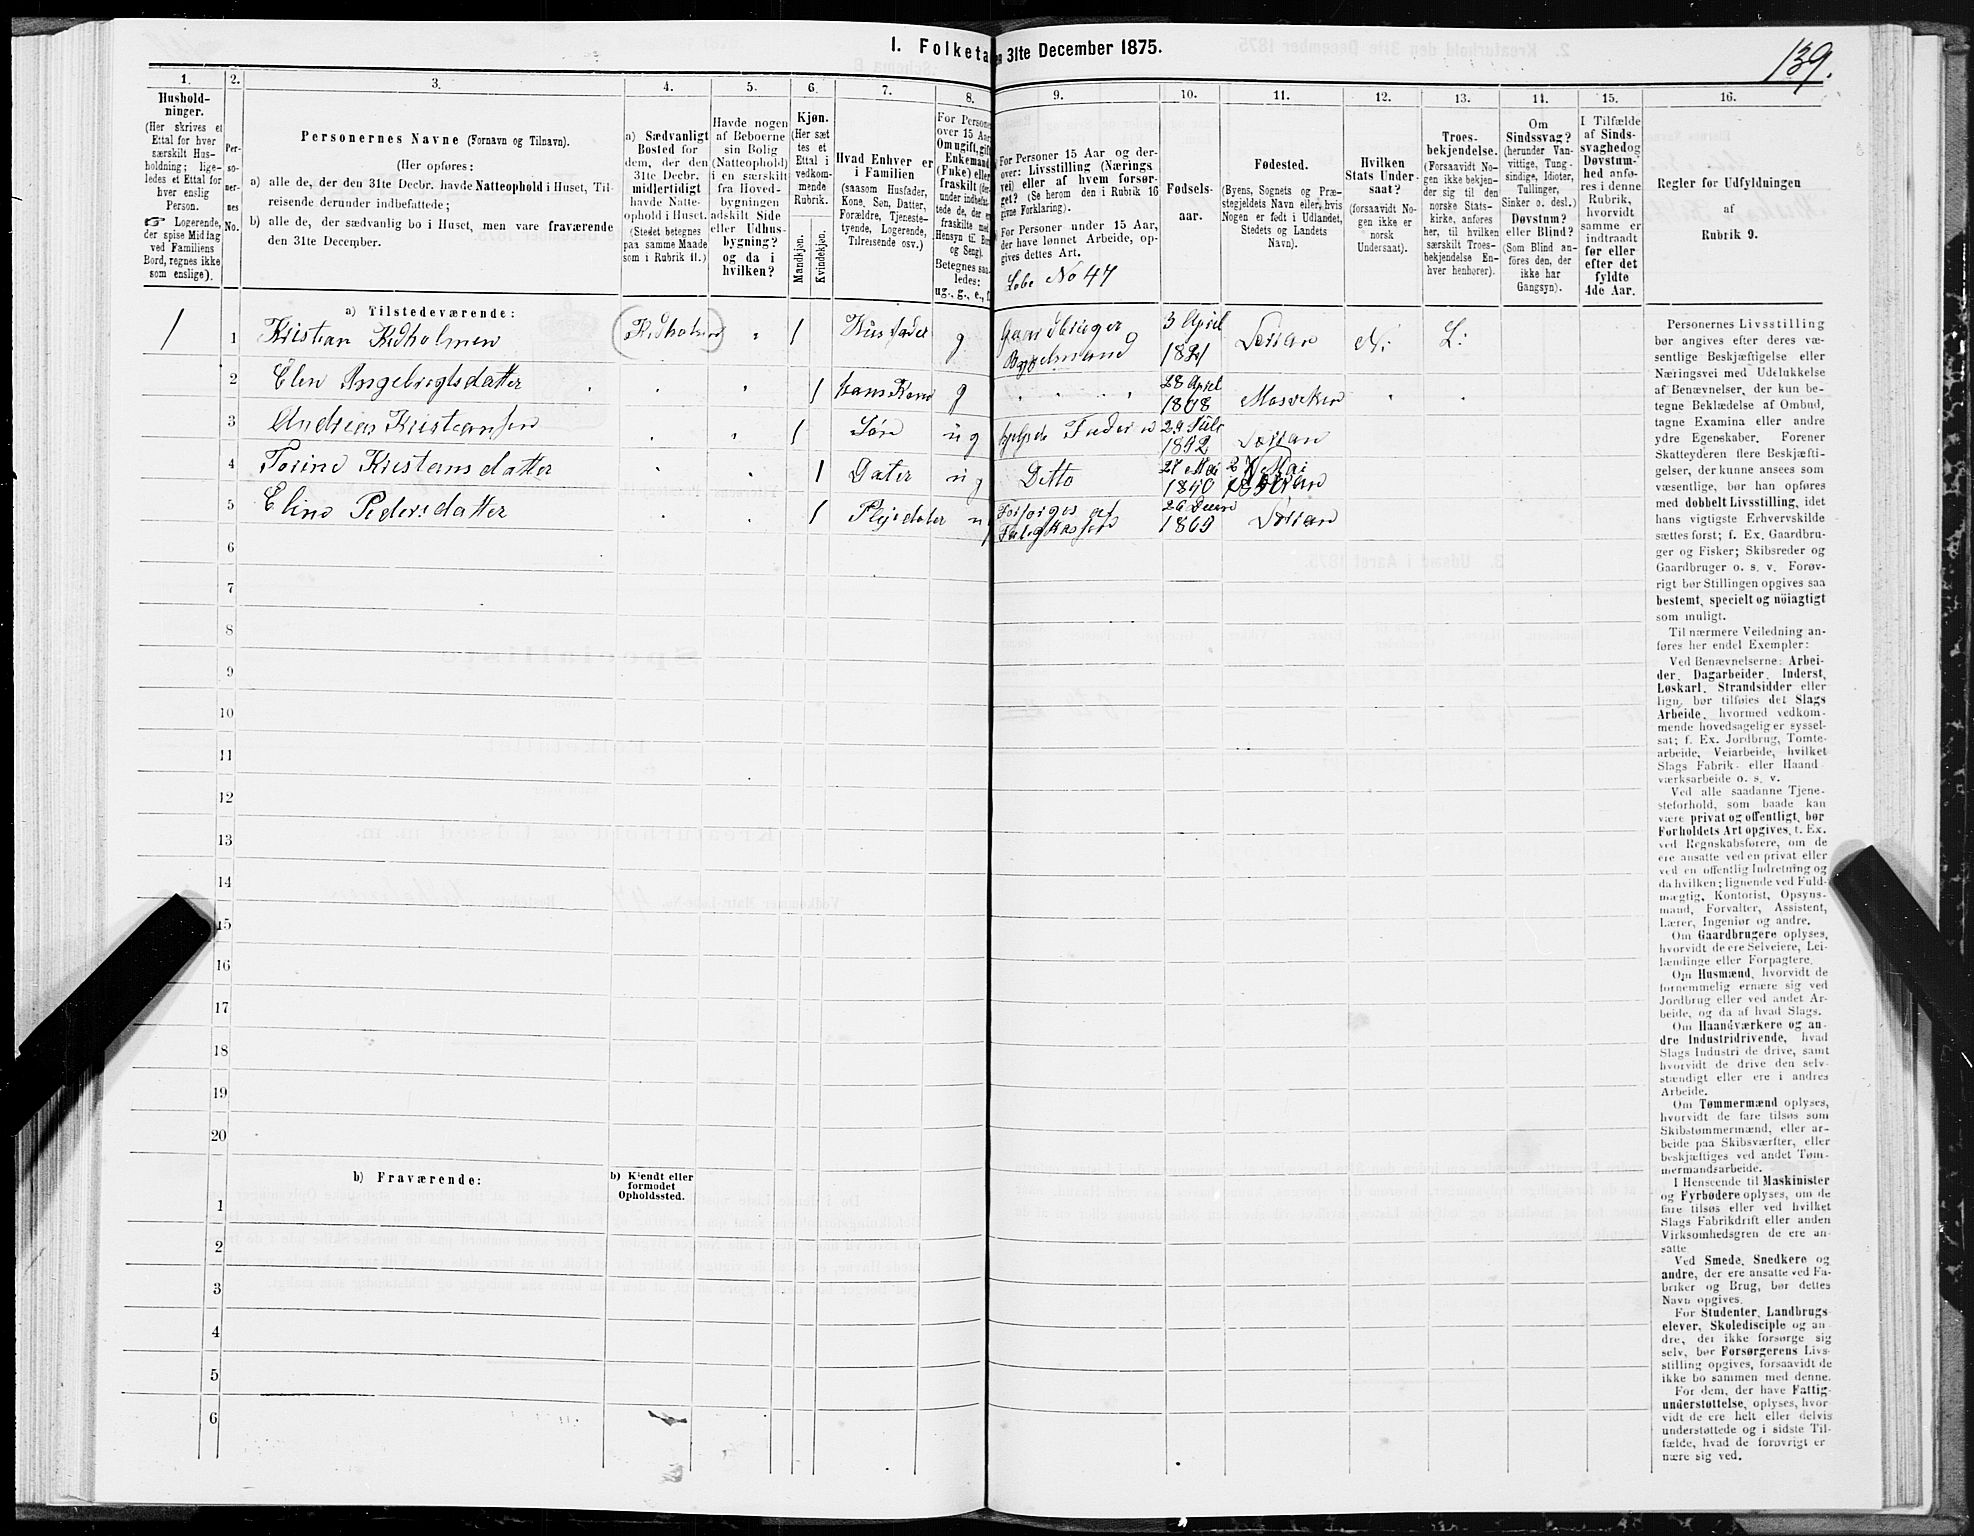 I. Folketa
en 31te December 1875.
139.
1.
Hushold-
ninger.
(Her skrives et
Ettal for hver
særskilt Hus-
holdning; lige-
ledes et Ettal for
hver enslig
Person.
☞ Logerende,
der spise Middag
ved Familiens
Bord, regnes ikke
som enslige).
2.
Per-
so-
ner-
nes
No.
3.
Personernes Navne (Fornavn og Tilnavn).
(Her opføres:
a) alle de, der den 31te Decbr. havde Natteophold i Huset, Til-
reisende derunder indbefattede;
b) alle de, der sædvanlig bo i Huset, men vare fraværende
den 31te December.
4.
a) Sædvanligt
Bosted for
dem, der den
31te Decbr.
midlertidigt
havde Natte-
ophold i Huset.
(Stedet betegnes
paa samme Maade
som i Rubrik 11.)
5.
Havde nogen
af Beboerne
sin Bolig
(Natteophold)
i en særskilt
fra Hoved-
bygningen
adskilt Side
eller Udhus-
bygning?
og da i
hvilken?
6.
Kjøn.
(Her sæt
tes et
Ettal i
vedkom-
mende
Rubrik.
Mandkjøn.
Kvindekjøn.
7.
Hvad Enhver er
i Familien
(saasom Husfader,
Kone, Søn, Datter,
Forældre, Tjeneste-
tyende, Logerende,
Tilreisende osv.)
8.
For Personer
over 15 Aar
Om ugift, gift,
Enkemand
(Enke) eller
fraskilt
Betegnes saa-
ledes:
ug., g., e., f.
9.
For Personer 15 Aar og der-
over: Livsstilling (Nærings
vei) eller af hvem forsør-
get? (Se herom den i Rubrik 16
givne Forklaring).
For Personer under 15 Aar,
der have lønnet Arbeide, op-
gives dettes Art.
Løbe No 47
10.
Fødsels-
aar.
11.
Fødested.
(Byens, Sognets og Præ-
stegjeldets Navn eller, hvis
Nogen er født i Udlandet,
Stedets og Landets
Navn).
12.
Hvilken
Stats Under-
saat?
(forsaavidt No-
gen ikke er
norsk
Undersaat).
13.
Troes-
bekjendelse.
(Forsaavidt No-
gen ikke bekjen-
der sig til den
norske Stats-
kirke, anføres
her, til hvilken
særskilt Troes-
bekjendelse En-
hver henhører).
14.
Om
Sindssvag?
(herunder Van-
vittige, Tung-
sindige, Idioter,
Tullinger,
Sinker o. desl.)
Døvstum?
eller Blind?
(Som Blind an-
føres den, der
ikke har
Gangsyn).
15.
I Tilfælde
af Sinds-
svaghed og
Døvstum-
hed anfø-
res i denne
Rubrik,
hvorvidt
samme er
indtraadt
før eller
efter det
fyldte
4de Aar.
16.
Regler for Udfyldningen
af
Rubrik 9.
a) Tilstedeværende:
1 1 Kristian Kidholmen (Kidholmen) " 1 Husfader g Gaardbruger 3 April 1821 Lexian N: L:
2 Elen Angebrigtsdatter 1 hans Kone g 28 April 1808 Mosviken
3 Andrias Kristiansen 1 Søn ug hjelpe Fader 1842 Lexian
4 Torine Kristiansdatter 1 Dater ug Ditto 27 Mai 1840 27 Mai
5 Eline Pedersdatter 1 Plejedater Forsørges af 1869 Lexian
6
7
8
9
10
11
12
13
14
15
16
17
18
19
20
b) Fraværende:
b) Kjendt eller
formodet
Opholdssted.
1
2
3
4
5
6
Personernes Livsstilling
bør angives efter deres væ-
sentlige Beskjæftigelse eller
Næringsvei med Udelukkelse
af Benævnelser, der kun be-
tegne Beklædelse af Ombud,
tagne Examina eller andre
ydre Egenskaber. Forener
Skatteyderen flere Beskjæfti-
gelser, der kunne ansees som
væsentlige, bør han opføres
med dobbelt Livsstilling, idet
hans vigtigste Erhvervskilde
sættes først; f. Ex. Gaardbru-
ger og Fisker; Skibsreder og
Gaardbruger o. s. v. Forøv-
rigt bør Stillingen opgives saa
bestemt, specielt og nöiagtigt
som muligt.
Til nærmere Veiledning an-
føres her endel Exempler:
Ved Benævnelserne: Arbei-
der, Dagarbeider, Inderst,
Løskarl, Strandsidder eller
lign. bør tilføies det Slags
Arbeide, hvormed vedkom-
mende hovedsagelig er syssel-
sat; f. Ex. Jordbrug, Tomte-
arbeide, Veiarbeide, hvilket
Slags Fabrik- eller Haand
værksarbeide o. s. v.
Ved alle saadanne Tjene-
steforhold, som baade kan
være privat og offentligt, bør
Forholdets Art opgives, t. Ex.
ved Regnskabsførere, om de
ere ansatte ved en privat eller
ved en offentlig Indretning og
da hvilken; lignende ved Fuld-
mægtig, Kontorist, Opsyns-
mand, Forvalter, Assistent,
Lærer, Ingeniør og andre.
Om Gaardbrugere oplyses,
hvorvidt de ere Selveiere, Lei-
lændinge eller Forpagtere.
Om Husmænd, hvorvidt de
fornemmelig ernære sig ved
Jordbrug eller ved andet Ar-
beide, og da af hvad Slags.
Om Haandværkere og an-
dre Industridrivende, hvad
Slags Industri de drive, samt
hvorvidt de drive den selv-
stændigt eller ere i andres
Arbeide.
Om Tømmermænd oplyses,
hvorvidt de fare tilsøs som
Skibstømmermænd, eller ar-
beide paa Skibsværfter, eller
beskjæftiges ved andet Tøm-
mermandsarbeide.
I Henseende til Maskinister
og Fyrbødere oplyses, om de
fare tilsøs eller ved hvilket
Slags Fabrikdrift eller anden
Virksomhedsgren de ere an-
satte.
Ved Smede, Snedkere og
andre, der ere ansatte ved Fa-
briker og Brug, bør dettes
Navn opgives.
For Studenter, Landbrugs-
elever, Skoledisciple og an-
dre, der ikke forsørge sig
selv, bør Forsørgerens Livs-
stilling opgives, forsaavidt de
ikke bo sammen med denne.
For dem, der have Fattig-
understøttelse, oplyses, hvor
vidt de ere helt eller delvis
understøttede og i sidste Til-
fælde, hvad de forøvrigt er
nære sig ved.